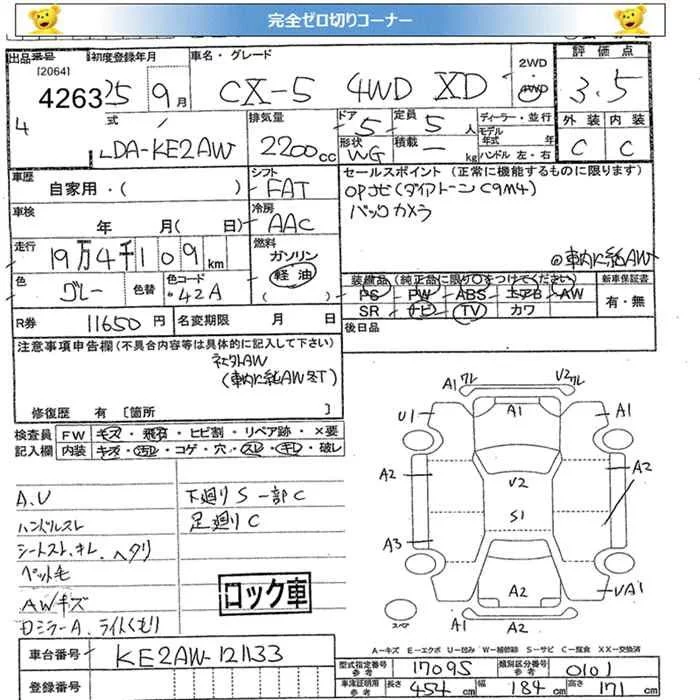 完全ゼロ切りコーナー
出品番号 初度登録年月 車名・グレード 2WD 評価点
[2064]
4263 25 9月 CX-5 4WD XD ・4WD 3.5
4
式 排気量 ドア 5 定員 5人 ディーラー・並行 外装 内装
LDA-KE2AW 2200cc 形状 WG 積載 ー kg モデル年式 年式 ハンドル 左・右 C C
車歴 自家用・( ) シフト FAT セールスポイント (正常に機能するものに限ります)
OPナビ(ダイアトーン C9M4)
車検 年 月( 日) 冷房 AAC バックカメラ
走行 19万4千109km 燃料 ガソリン 軽油 ( ) ◎車内に純AW
色 グレー 色替 色コード 42A 装備品(純正品に限り○をつけてください) 新車保証書
PS PW ABS エアB AW 有・無
SR ナビ TV カワ
R券 11650円 名変期限 月 日 後日品
注意事項申告欄(不具合内容等は具体的に記入して下さい)
社外AW
(車内に純AW冬T)
修復歴 有 [箇所 ]
検査員 FW キズ・飛石・ヒビ割・リペア跡・×要
記入欄 内装 キズ・汚れ・コゲ・穴・スレ・キレ・破レ
A.U 下廻りS一部C
ハンドルスレ 足廻りC
シートスレ、キレ、ヘタリ
ペット毛
AWキズ
ロック車
ドミラーA、ライトくもり
A1 ワレ V2 ワレ
U1 A1 A1
A2 V2 A2
S1
A3
A2 UA1
スペア A1 A2
A-キズ E-エクボ U-凹み W-補修跡 S-サビ C-腐食 XX-交換済
車台番号 KE2AW-121133
型式指定番号 参考 17095 類別区分番号 参考 0101
登録番号
車庫証明用 参考 長さ 454cm 幅 184cm 高さ 171cm